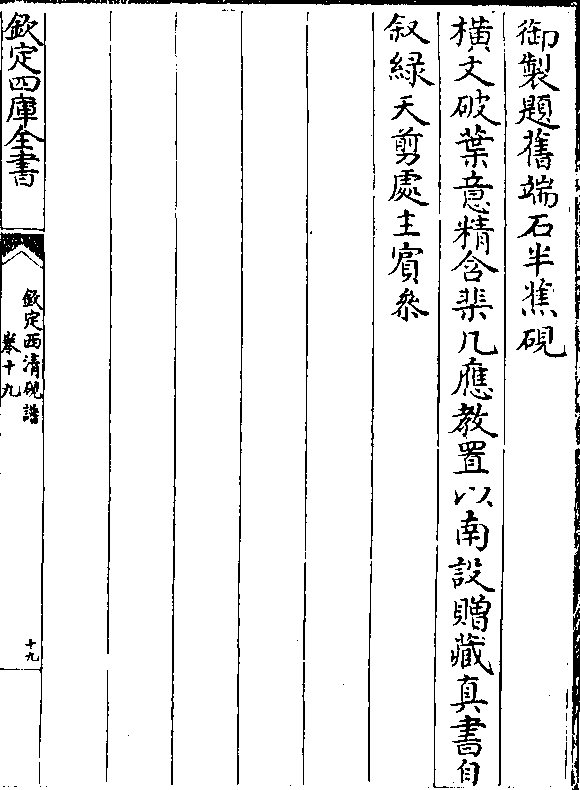 御製題舊端石半蕉硯
橫文破葉意精含棐几應教置以南設贈藏真書自
叙綠天剪處主賓叅
欽定四庫全書
欽定西清硯譜
卷十九
十九